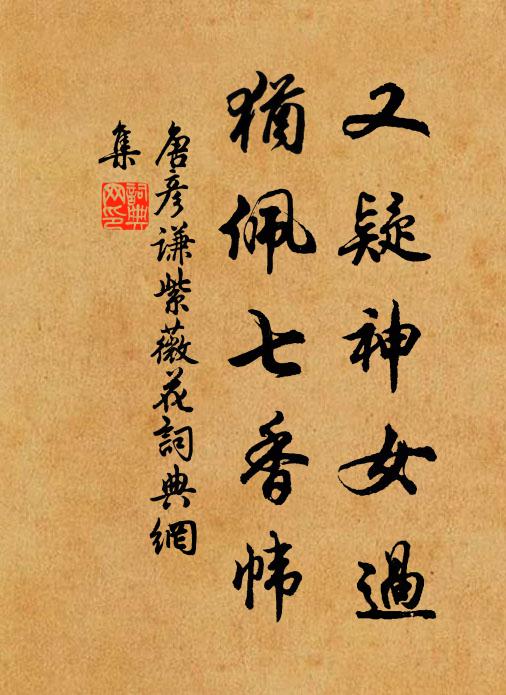 又疑神女過
猶佩七香幃
唐彥謙紫薇花詞典網
集
詞典
网印